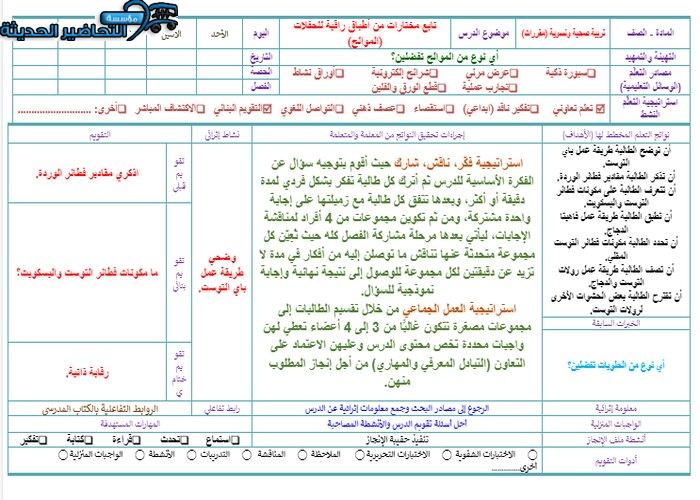 مؤسسة
التحاضير الحديثة
المادة ـ الصف
تربية صحية ونسوية (مقررات)
موضوع الدرس
تابع مختارات من أطباق راقية للحفلات
(الموالح)
اليوم
الأحد
الاثنين
التهيئة والتمهيد
أي نوع من الموالح تفضلين؟
التاريخ
مصادر التعلم
(الوسائل التعليمية)
سبورة ذكية
عرض مرئي
شرائح إلكترونية
أوراق نشاط
الحصة
تجارب عملية
قطع الورق والفلين
الفصل
استراتيجية التعلم
النشط
تعلم تعاوني
تفكير ناقد (ابداعي)
استقصاء
عصف ذهني
التواصل اللغوي
التقويم البنائي
الاكتشاف المباشر
أخرى: ...........................
نواتج التعلم المخطط لها (الأهداف)
إجراءات تحقيق النواتج من المعلمة والمتعلمة
نشاط إثرائي
التقويم
أن توضح الطالبة طريقة عمل باي
التوست.
أن تذكر الطالبة مقادير فطائر الوردة.
أن تتعرف الطالبة على مكونات فطائر
التوست والبسكويت.
أن تطبق الطالبة طريقة عمل فاهيتا
الدجاج.
أن تحدد الطالبة مكونات فطائر التوست
المقلي.
أن تصف الطالبة طريقة عمل رولات
التوست والدجاج.
أن تقترح الطالبة بعض الحشوات الأخرى
لرولات التوست.
الخبرات السابقة
أي نوع من الحلويات تفضلين؟
استراتيجية فكّر، ناقش، شارك حيث أقوم بتوجيه سؤال عن
الفكرة الأساسية للدرس ثم أترك كل طالبة تفكر بشكل فردي لمدة
دقيقة أو أكثر، وبعدها تتفق كل طالبة مع زميلتها على إجابة
واحدة مشتركة، ومن ثم تكوين مجموعات من 4 أفراد لمناقشة
الإجابات، ليأتي بعدها مرحلة مشاركة الفصل كله حيث تُعيّن كل
مجموعة متحدثة عنها تناقش ما توصلن إليه من أفكار في مدة لا
تزيد عن دقيقتين لكل مجموعة للوصول إلى نتيجة نهائية وإجابة
نموذجية للسؤال.
استراتيجية العمل الجماعي من خلال تقسيم الطالبات إلى
مجموعات مصغرة تتكون غالبًا من 3 إلى 4 أعضاء تعطي لهن
واجبات محددة تخص محتوى الدرس وعليهن الاعتماد على
التعاون (التبادل المعرفي والمهاري) من أجل إنجاز المطلوب
منهن.
وضحي
طريقة عمل
باي التوست.
تقو
يم
قبلي
اذكري مقادير فطائر الوردة.
تقو
يم
بنائي
ما مكونات فطائر التوست والبسكويت؟
تقو
يم
ختام
ي
رقابة ذاتية.
معلومة إثرائية
الرجوع إلى مصادر البحث وجمع معلومات إثرائية عن الدرس
رابط تفاعلي
الروابط التفاعلية بالكتاب المدرسي
الواجبات المنزلية
أحل أسئلة تقويم الدرس والأنشطة المصاحبة
المهارات المستهدفة
أنشطة ملف الإنجاز
تنفيذ حقيبة الإنجاز
استماع
تحدث
قراءة
كتابة
تفكير
أدوات التقويم
الاختبارات الشفوية
الاختبارات التحريرية
الملاحظة
المناقشة
التدريبات
الأنشطة
الواجبات المنزلية
أخرى..............